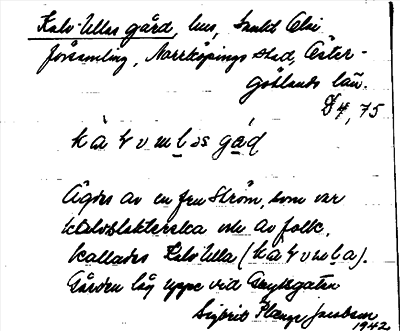 Kalv-Ullas gård, hus, Sankt Olai
församling, Norrköpings stad, Öster-
götlands län.
D4, 75
Ägdes av en fru Ström, som var
kalvslakterska och av folk
kallades Kalv Ulla
Gården låg uppe vid
Sigbrit Plænge Jacobson
1942